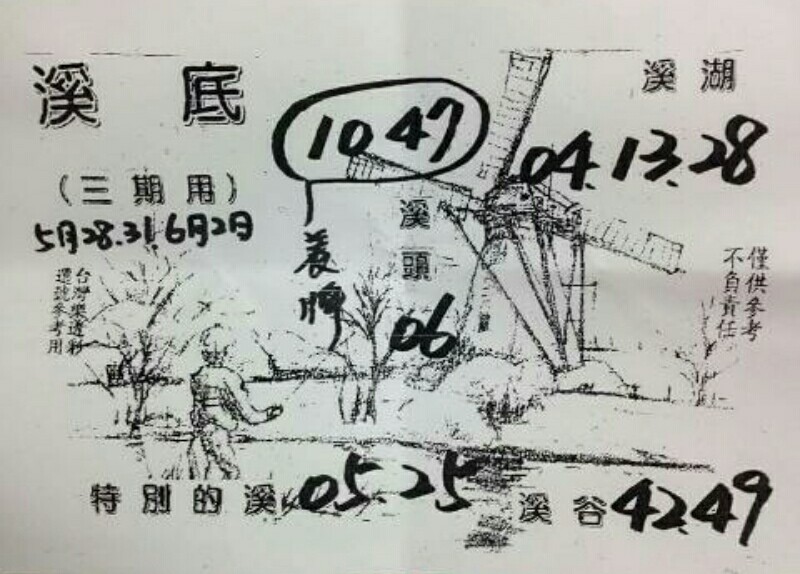 溪底
溪湖
10 47
04. 13. 28
(三期用)
5月28.31.6月2日
養牌
溪頭
06
僅供參考
不負責任
台灣樂透彩
選號參考用
特別的溪 05. 25
溪谷 42. 49